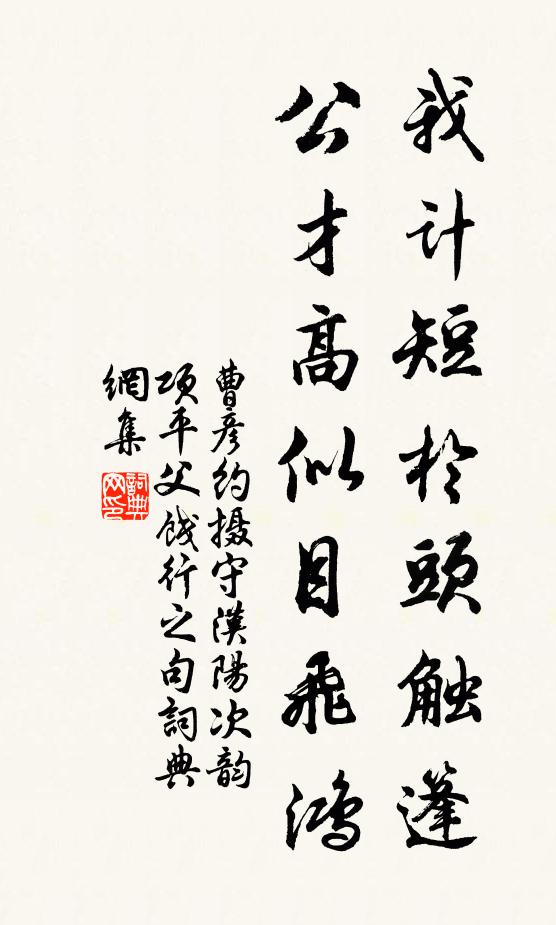 我计短於頭触蓬
公才高似目飛鴻
曹彦约摄守漢陽次韵
項平父餞行之句詞典
網集
詞典网印